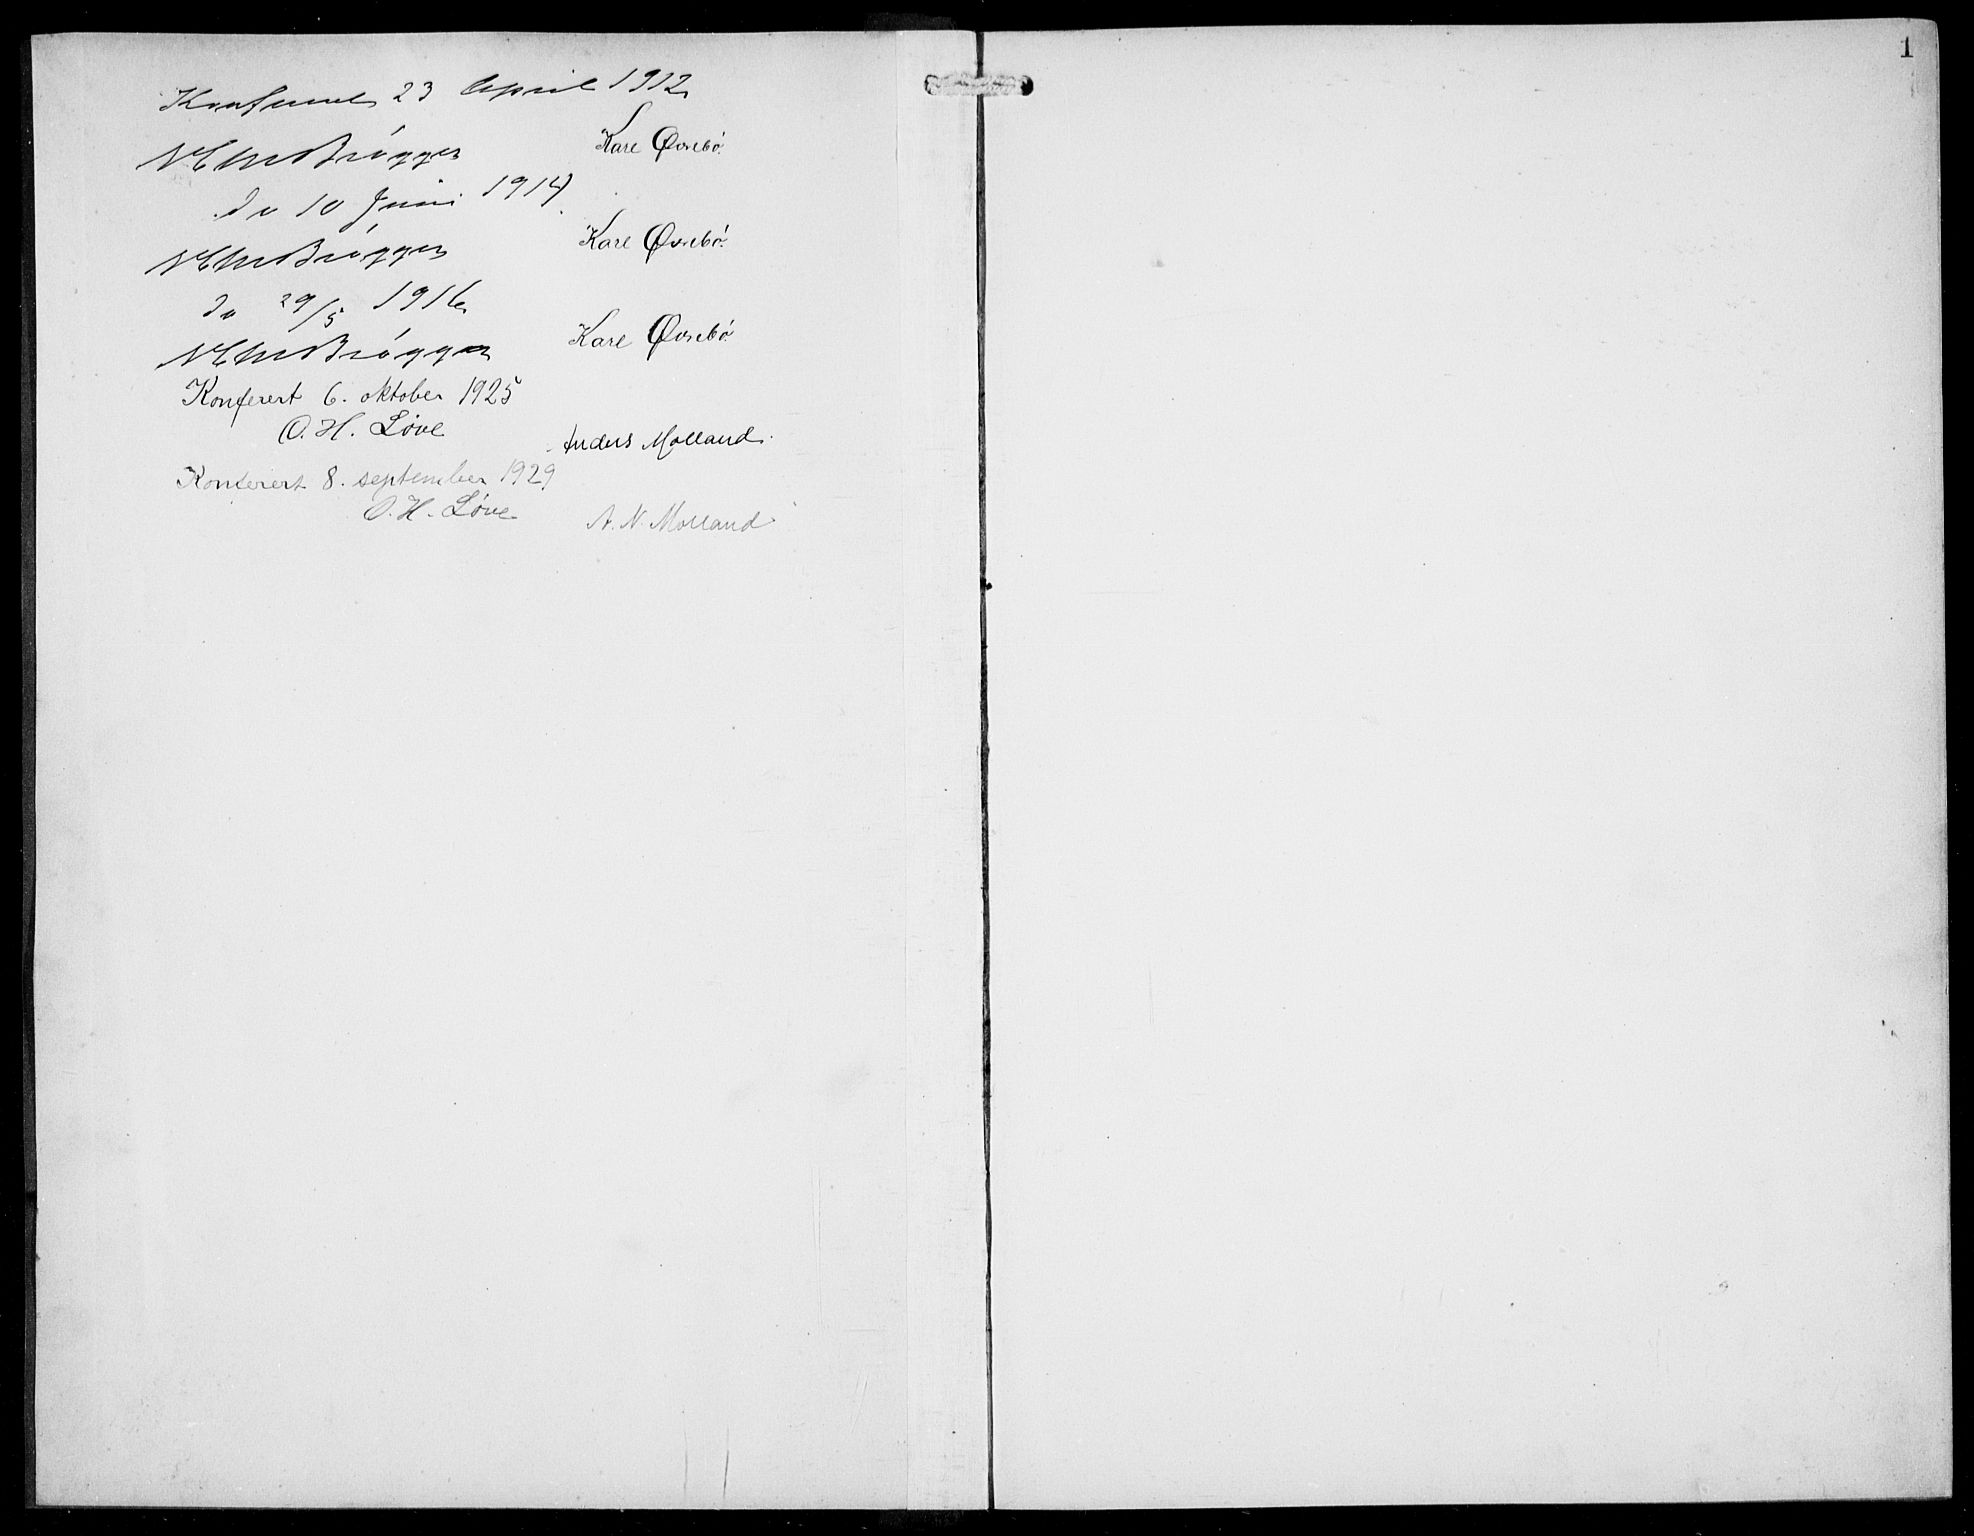 Konfereret 23 April 1912
Brøgger
Kare Øvrebø.
do 10 Juni 1914
Brøgger
Kare Øvrebø.
do 29/5 1916
Brøgger
Kare Øvrebø
Konferert 6. oktober 1925
O. H. Løve
Anders Molland.
Konferert 8. september 1929
O. H. Løve
A. N. Molland
1